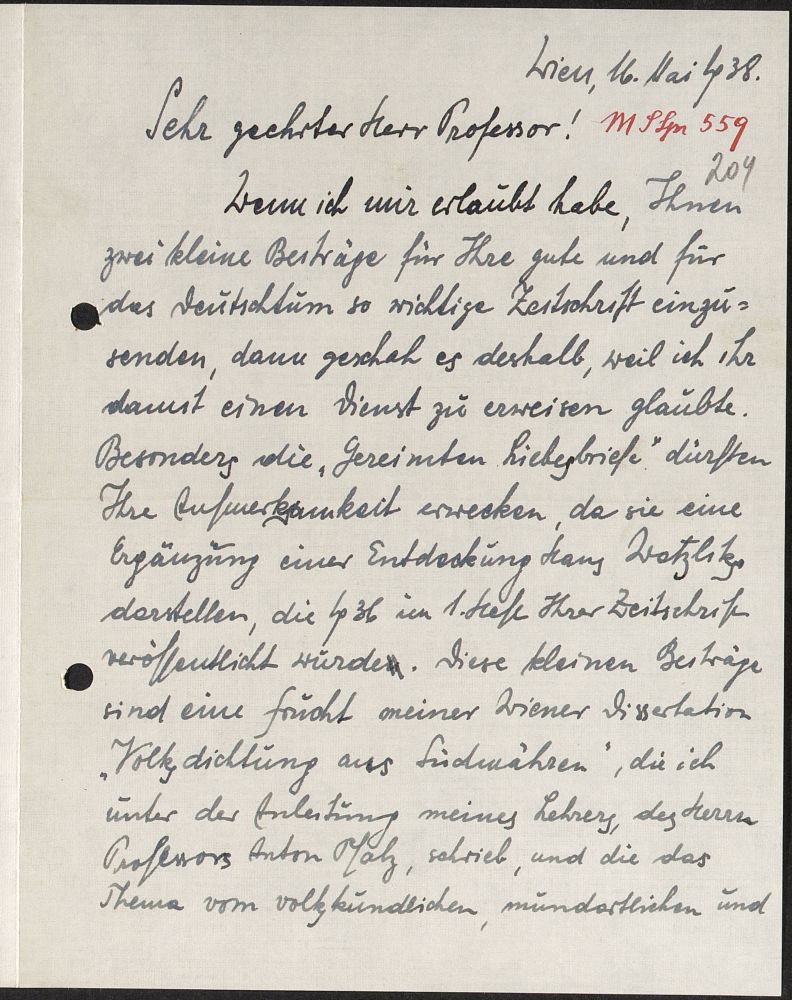 Wien, 16. Mai 1938.
Sehr geehrter Herr Professor!
559
204
Wenn ich mir erlaubt habe, Ihnen
zwei kleine Beiträge für Ihre gute und für
das Deutschtum so wichtige Zeitschrift einzu=
senden, dann geschah es deshalb, weil ich ihr
damit einen Dienst zu erweisen glaubte.
Besonders die „Gereimten Liebesbriefe" dürften
Ihre Aufmerksamkeit erwecken, da sie eine
Ergänzung einer Entdeckung Hans Watzliks
darstellen, die 1936 im 1. Hefte Ihrer Zeitschrift
veröffentlicht wurde. Diese kleinen Beiträge
sind eine Frucht meiner Wiener Dissertation
„Volksdichtung aus Südmähren", die ich
unter der Anleitung meines Lehrers, des Herrn
Professors Anton Pfalz, schrieb, und die das
Thema vom volkskundlichen, mundartlichen und